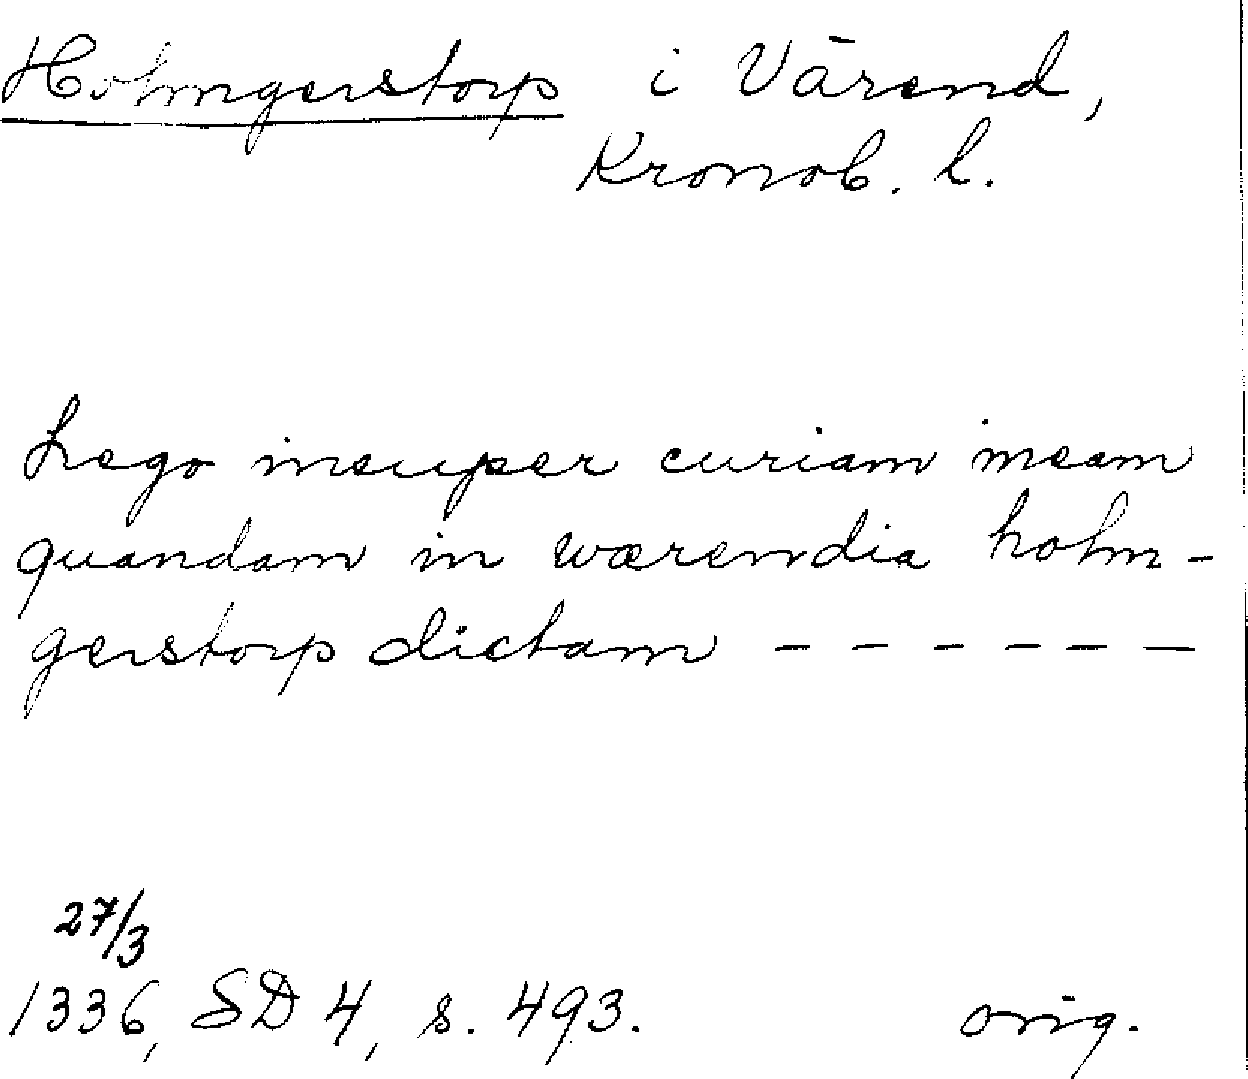 Holmgerstorp i Värend,
Kronob. l.
Lego insuper curiam meam
quandam in wærendia holm-
gerstorp dictam - - - - - -
27/3
1336, SD 4, s. 493. orig.